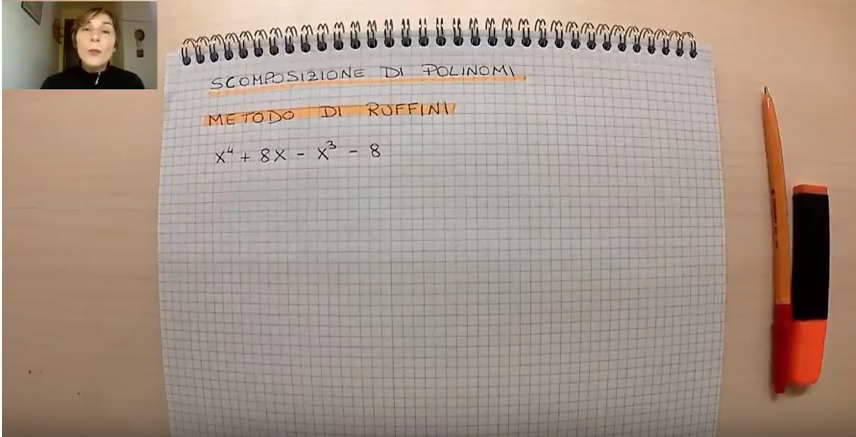 SCOMPOSIZIONE DI POLINOMI
METODO DI RUFFINI
x⁴ + 8x - x³ - 8